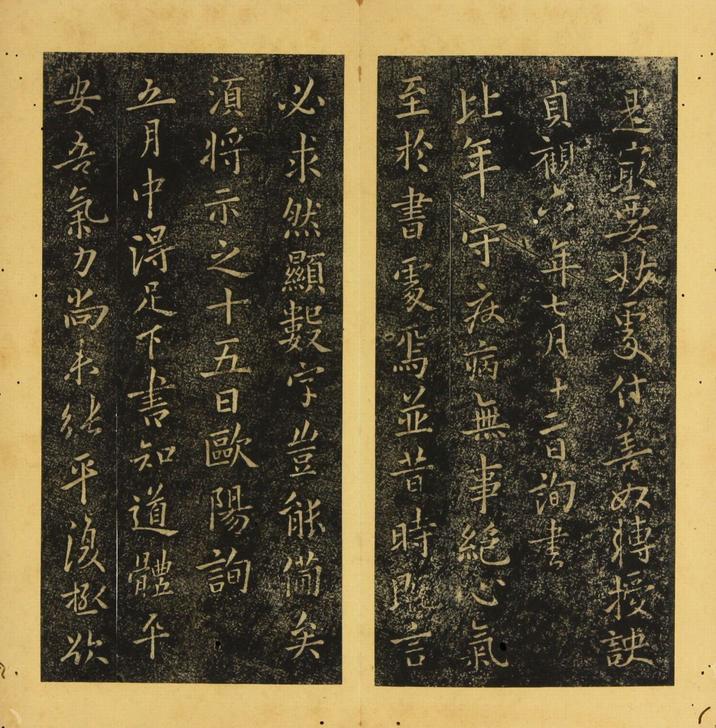 是最要妙處付善奴縛授訣
貞觀六年七月十二日詢書
比年守疾病無事絕心氣
至於書處焉並昔時既言
必求然顯數字豈能備矣
須將示之十五日歐陽詢
五月中得足下書知道體平
安吾氣力尚未能平復極欲